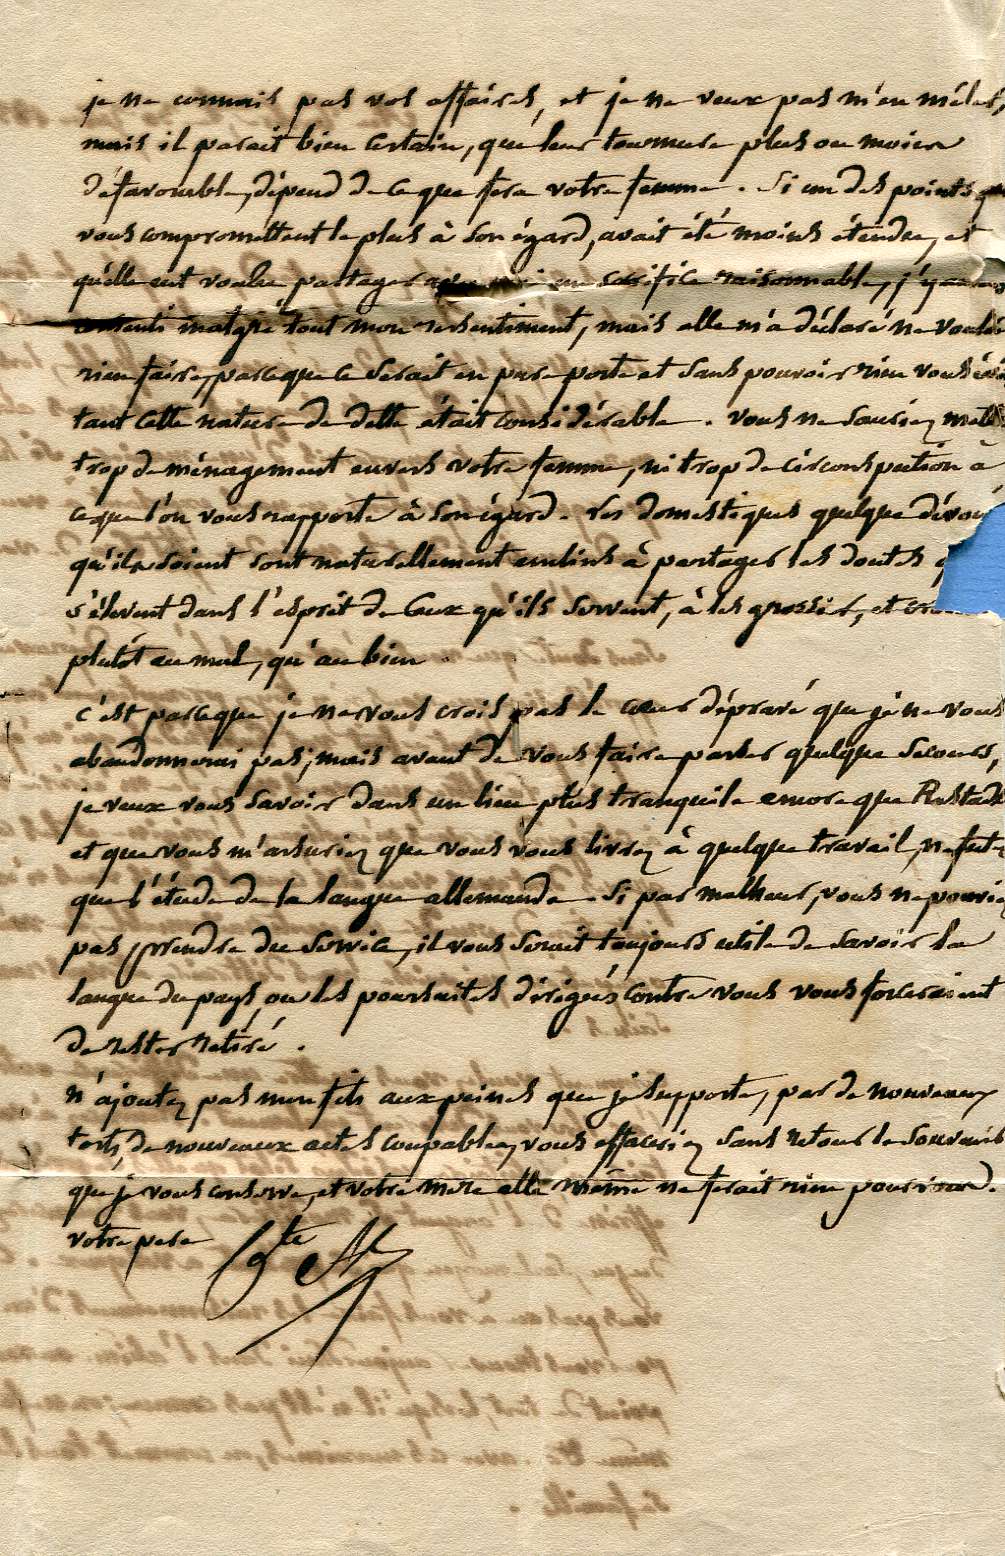 je ne connais pas vos affaires, et je ne veux pas m'en mêler,
mais il parait bien certain, que leur tournure plus ou moins
défavorable, dépend de ce que fera votre femme. Si un des points qui
vous compromettent le plus à son égard, avait été moins étendu, et
qu'elle eut voulu partager avec moi un sacrifice raisonnable, j'y aurais
consenti malgré tout mon ressentiment, mais elle m'a déclaré ne vouloir
rien faire, parceque ce serait en pure perte et sans pouvoir rien vous
tant cette nature de dette était considérable. vous ne sauriez mettre
trop de ménagement envers votre femme, ni trop de circonspection a
ceque l'on vous rapporte à son égard. Les domestiques quelque dévoué
qu'ils soient sont naturellement enclins à partager les doutes
s'élevent dans l'esprit de Ceux qu'ils servent, à les grossir, et
plutôt au mal, qu'au bien.
c'est parceque je ne vous crois pas le cœur dépravé que je ne vous
abandonnerai pas; mais avant de vous faire passer quelque secours,
je veux vous savoir dans un lieu plus tranquile encore que Rastadt
et que vous m'assuriez que vous vous livrez à quelque travail, ne fut
que l'étude de la langue allemande. Si par malheur, vous ne pouviez
pas prendre du service, il vous serait toujours utile de savoir la
langue du pays, ou les poursuites dirigées contre vous vous forceraient
de rester retiré.
n'ajoutez pas mon fils aux peines que je supporte, par de nouveaux
torts, de nouveaux actes coupables, vous effaceriez sans retour le souvenir
que je vous conserve, et votre mere elle même ne ferait rien pour vous.
votre pere